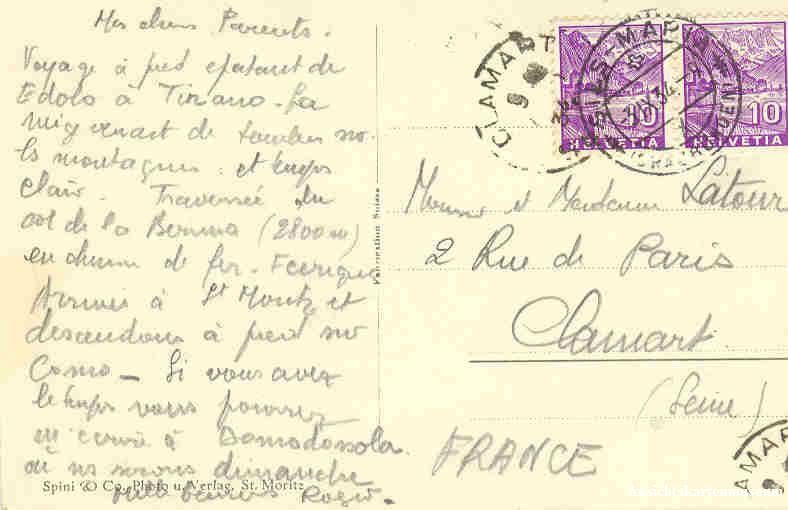 Mes chers Parents.
Voyage à pied epatant de
Edolo à Tirano. La
neige venant de tomber sur
ls montagnes. et temps
clair. Traversée du
col de la Bernina (2800m)
en chemin de fer. Feerique
Arrivés à St Moritz et
descendons à pied sur
Como - Si vous avez
le temps vous pourrez
m'ecrire à Domodossola.
où ns serons dimanche
Mille baisers Roger.
Spini & Co., Photo u. Verlag, St. Moritz
Fabrication Suisse
CLAMART
9
SILS-MARIA
HELVETIA
10
HELVETIA
Monsieur et Madame Latour
2 Rue de Paris
Clamart
(Seine)
FRANCE
CLAMART